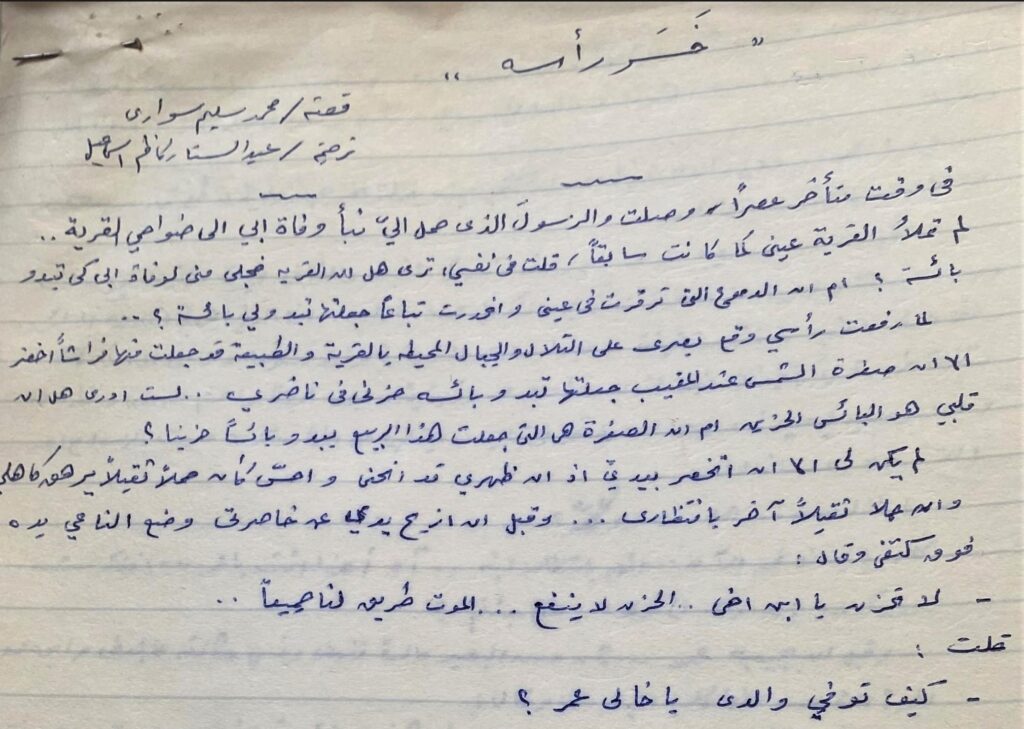 " خَسَر رأسه "
قصة / محمد سليم سواري
ترجمة / عبد الستار كاظم اسماعيل
في وقت متأخر عصراً، وصلت والرسولَ الذي حمل اليّ نبأ وفاة ابي الى ضواحي القرية ..
لم تملأ القرية عيني كما كانت سابقاً، قلت في نفسي: ترى هل ان القريه خجلى مني لوفاة ابي كي تبدو
بائسة ؟ ام ان الدموع التي ترقرت في عيني وانحدرت تباعاً جعلتها تبدو لي بائسة ؟ ..
لما رفعت رأسي وقع بصرى على التلال والجبال المحيطه بالقرية والطبيعة قد جعلت منها فراشاً أخضر
الا ان صفرة الشمس عند المغيب جعلتها تبدو بائسه حزنى في ناضري .. لست ادرى هل ان
قلبي هو البائس الحزين ام ان الصفرة هي التي جعلت هذا الربيع يبدو بائساً حزينا ؟
لم يكن لي الا ان اتخصر بيديّ اذ ان ظهري قد انحنى و احسّ كأن حملاً ثقيلاً يرهق كاهلي
وان حملا ثقيلاً آخر بانتظارى ... وقبل ان ازيح يديّ عن خاصرتي وضع الناعي يده
فوق كتفي وقال :
- لا تحزن يا ابن اخي .. الحزن لا ينفع ... الموت طريق لنا جميعاً ..
قلت :
- كيف توفي والدى يا خالى عمر ؟